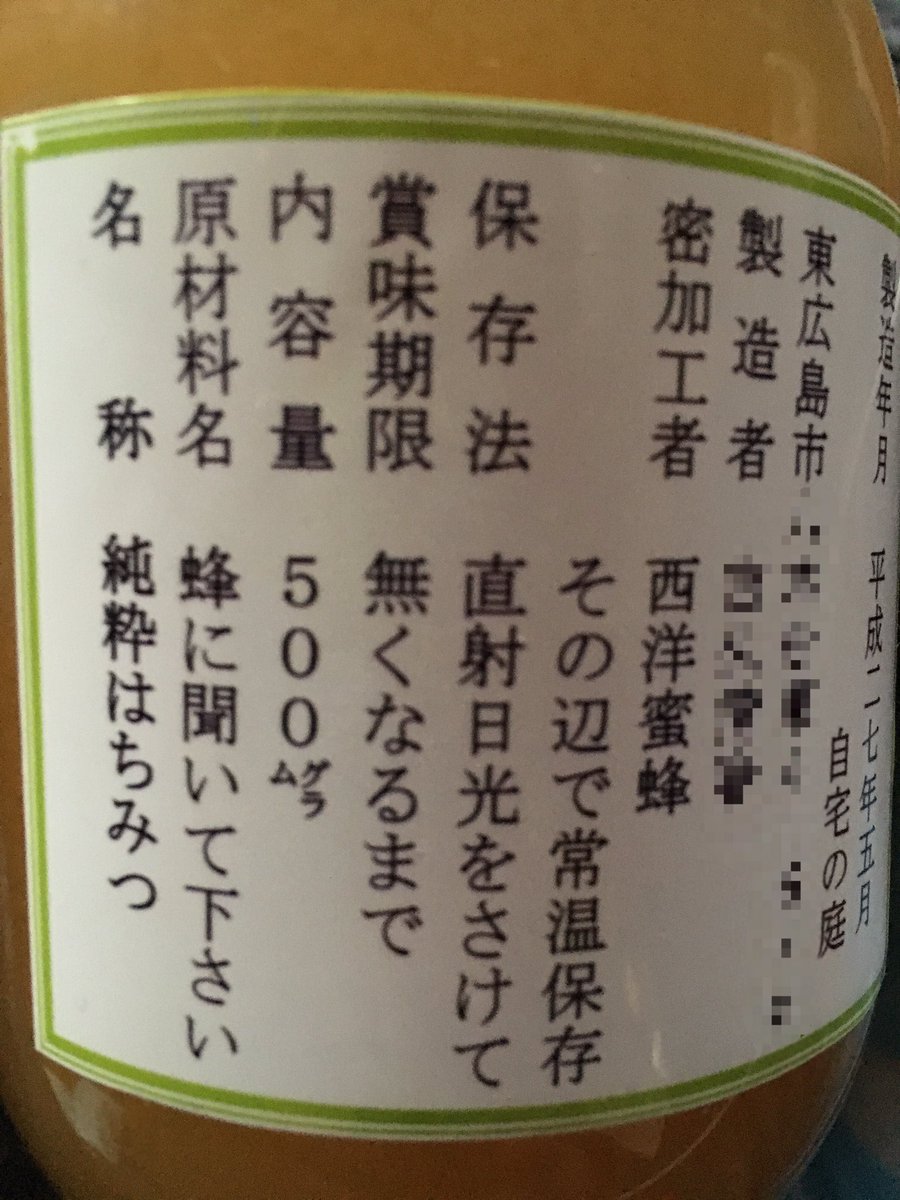 名称 純粋はちみつ
原材料名 蜂に聞いて下さい
内容量 500グラム
賞味期限 無くなるまで
保存法 直射日光をさけて
その辺で常温保存
密加工者 西洋蜜蜂
製造者
東広島市
自宅の庭
製造年月 平成二七年五月